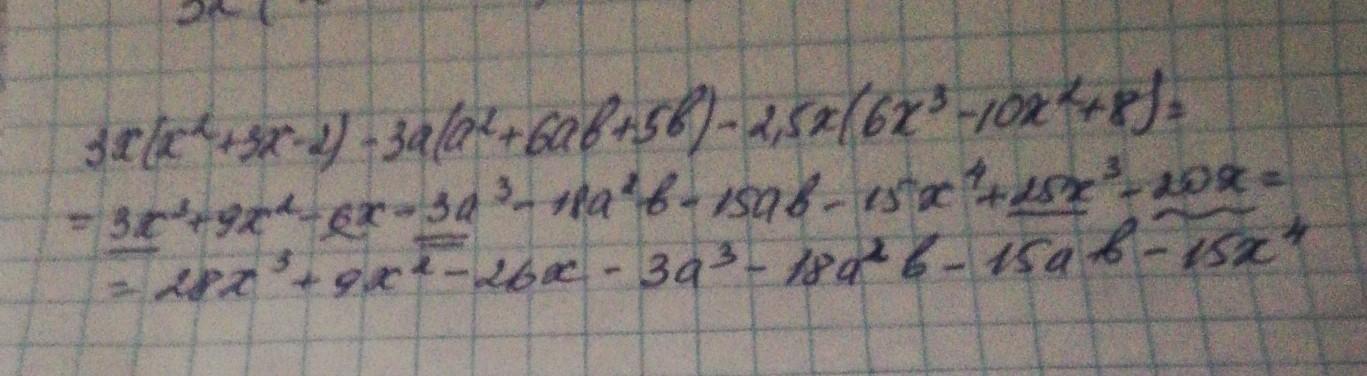 3x(x²+3x-2)-3a(a²+6ab+5b)-2,5x(6x³-10x²+8)=
=3x³+9x²-6x-3a³-18a²b-15ab-15x⁴+25x³-20x=
=28x³+9x²-26x-3a³-18a²b-15ab-15x⁴